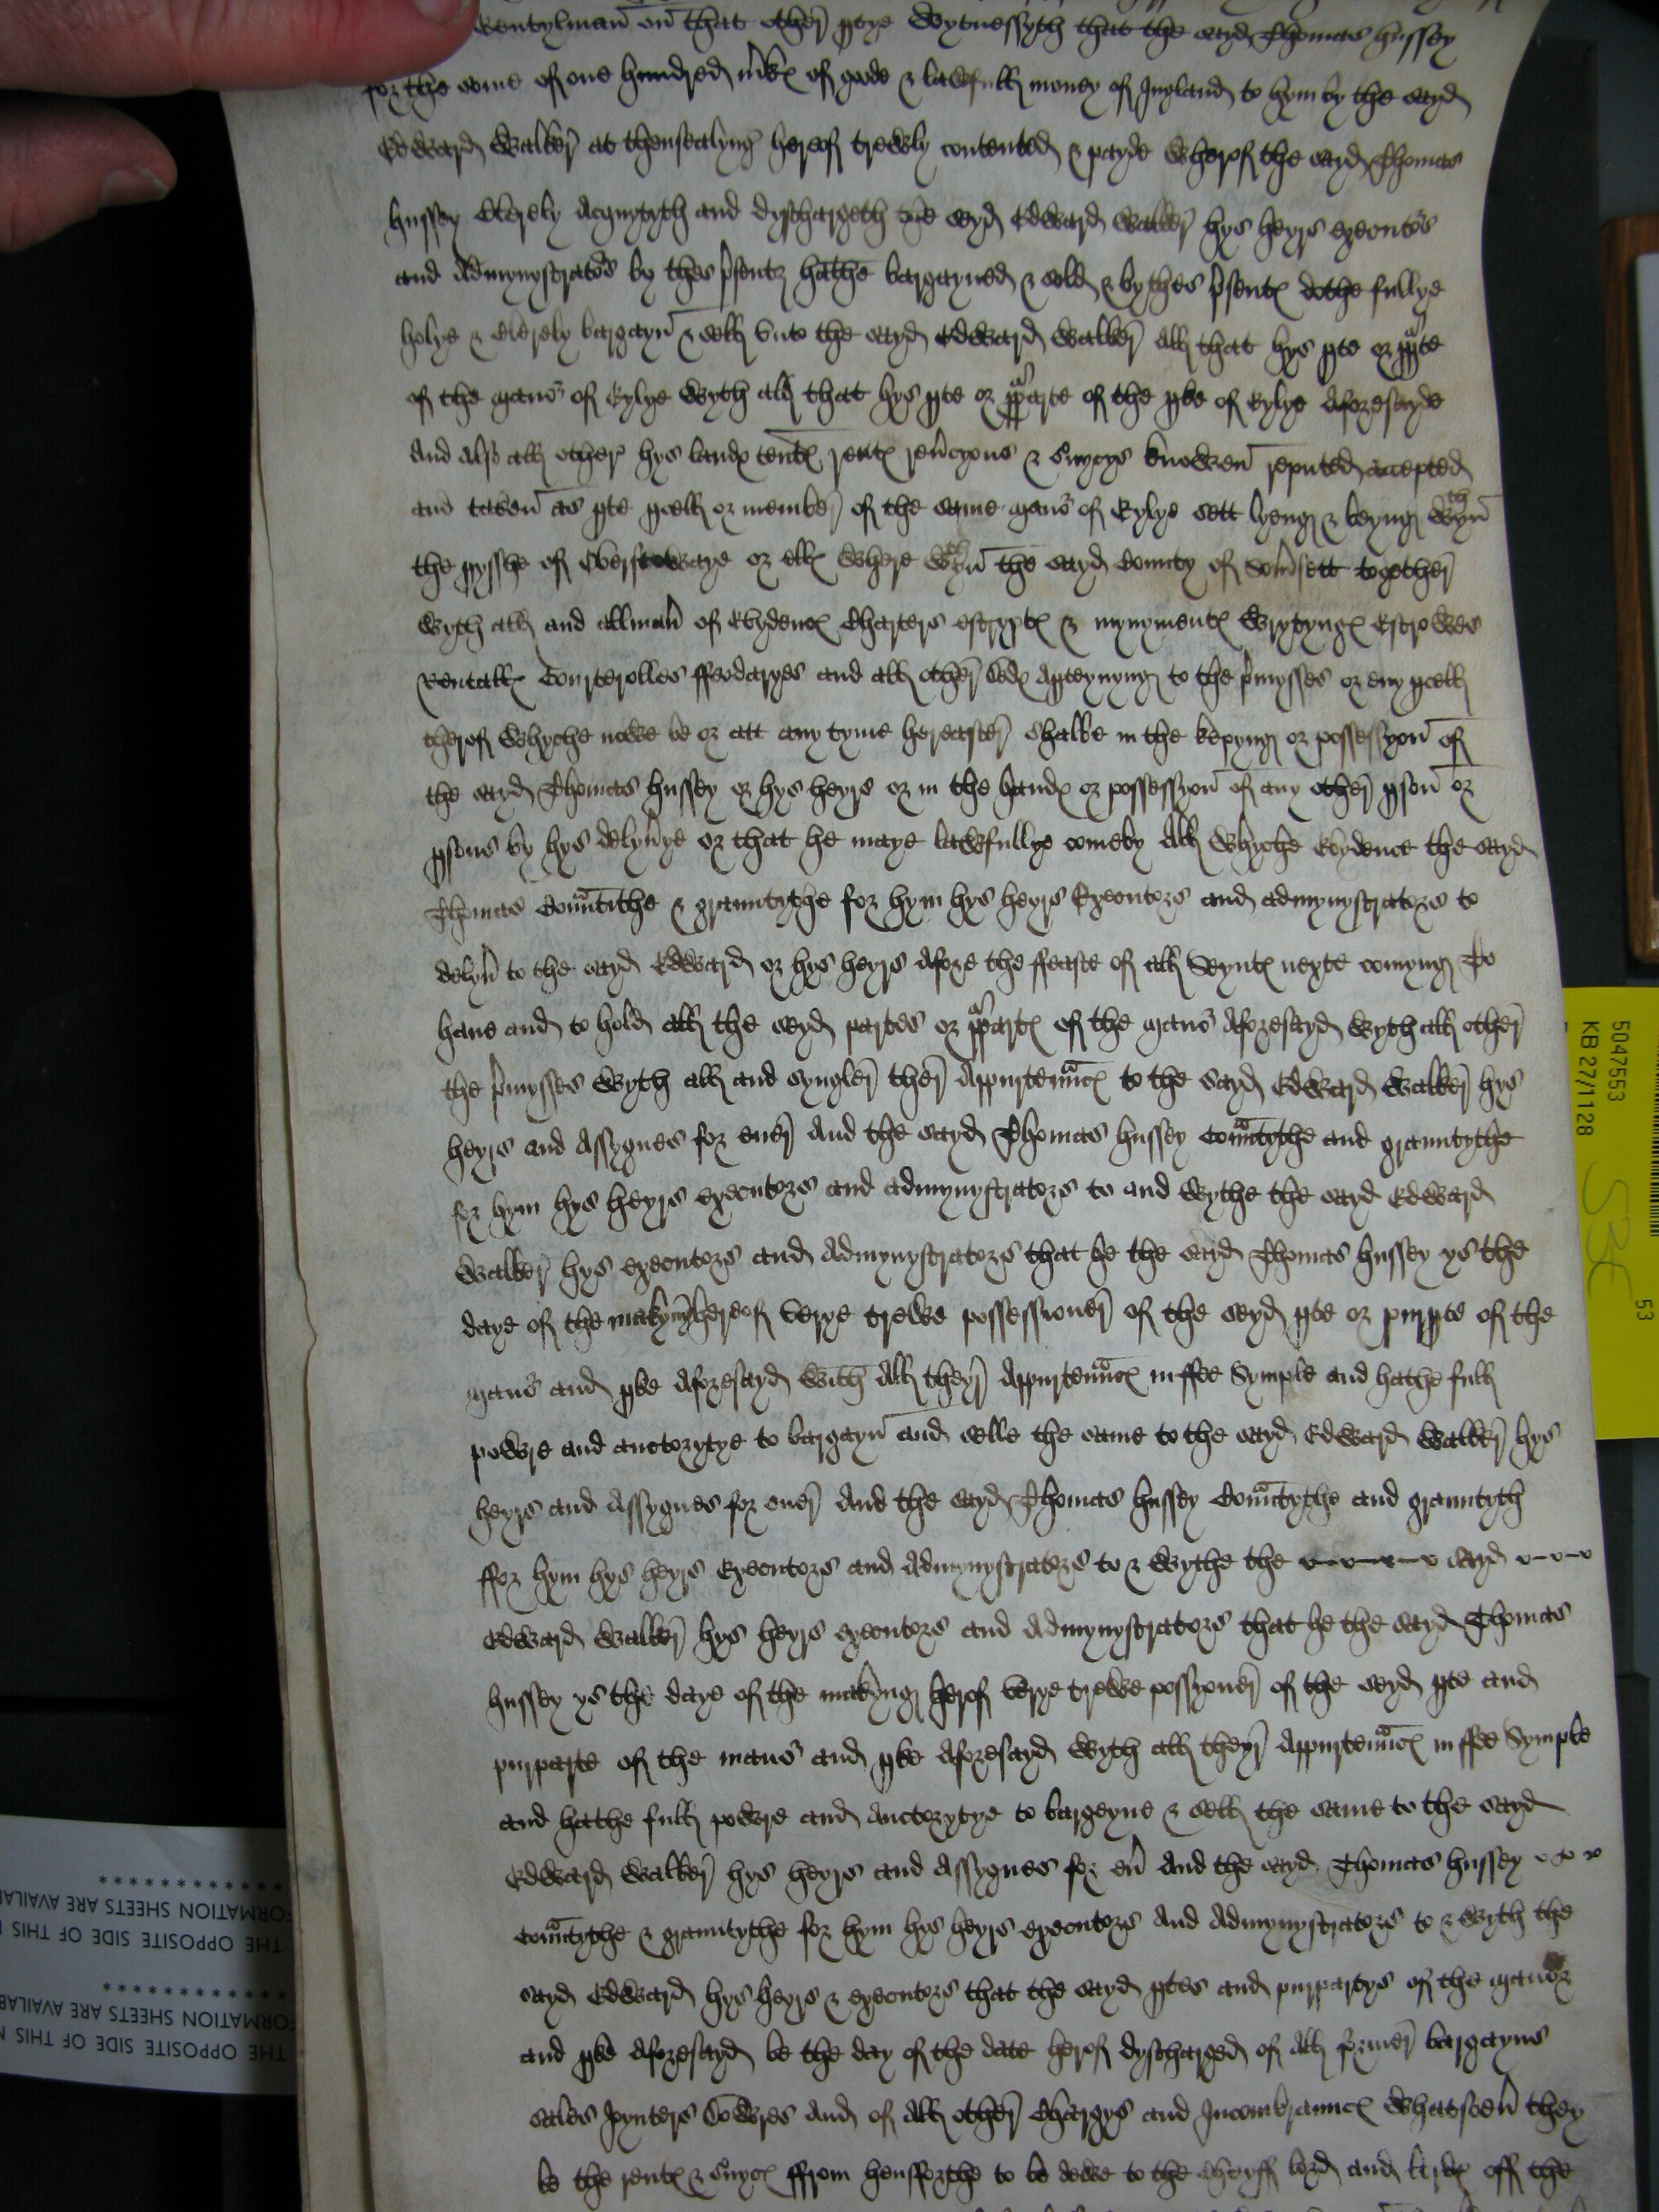 Gentylman on that other ptye Wytnessyth that the sayd Thomas hussey
for the some of one hundred mrkes of goode & lawfull money of Ingland to hym by the sayd
Edward Walker at thensealyng hereof trewly contented & payde Wherof the sayd Thomas
hussey Clerely Acquytyth and dyschargeth the seyd Edward Walker hys heyrs executors
and Admynystrators by thes psents hathe bargayned & sold & by thes psents dothe fullye
holye & clerely bargayn & sell unto the sayd Edward Walker All that hys pte or pppte
of the manor of Rylye Wyth all that hys pte or ppparte of the pke of Rylye Aforesayde
And Also all other hys lands tents rents revcyons & svycys knowen reputed accepted
and taken as pte pcell or member of the same manor of Rylye sett lyeng & beyng wthyn
the pysshe of Overstowaye or ells Where wthyn the sayd County of Somsett together
Wyth all and allman of Evydencs Charters escrypts & mynyments Wrytyngs Escrowes
Rentalls Courterolles ffeodaryes and all other Deds Apteynyng to the pmysses or eny pcell
therof Whyche nowe be or att any tyme hereafter shalbe in the kepyng or possessyon of
the sayd Thomas hussey or hys heyrs or in the hands or possessyon of any other pson or
psons by hys delyvye or that he maye lawfullye comeby All Whyche Evydence the sayd
Thomas Covntithe & grauntythe for hym hys heyrs Executors and admynystrators to
delyv to the sayd Edward or hys heyrs Afore the ffeaste of all Seynts nexte comyng To
have and to hold all the seyd partes or ppparts of the manor Aforesayd Wyth all other
the pmysses Wyth all and synguler ther Appurtennccs to the Sayd Edward Walker hys
heyrs and Assygnes for ever And the sayd Thomas hussey covntythe and grauntythe
for hym hys heyrs executors and admynystrators to and Wythe the sayd Edward
Walker hys executors and Admynystrators that he the sayd Thomas hussey ys the
daye of the makyng hereof Verye trewe possessioner of the seyd pte or purpte of the
manor and pke Aforesayd With All theyr Appurtennccs in ffee Symple and hathe full
powre and auctorytye to bargayn and selle the same to the sayd Edward Walker hys
heyrs and Assygnes for ever And the sayd Thomas hussey Covntythe and grauntyth
ffor hym hys heyrs Executors and Admynystrators to & Wythe the sayd
Edward Walker hys heyrs executors and Admynystrators that he the sayd Thomas
hussey ys the daye of the makyng herof Verye trewe possyoner of the seyd pte and
purparte of the manor and pke Aforesayd Wyth all theyr Appurtennccs in ffee Symple
and hathe full powre and Auctorytye to bargeyne & sell the same to the sayd
Edward Walker hys heyrs and Assygnes for ev And the sayd Thomas hussey
covntythe & grauntythe for hym hys heyrs executors And Admynystrators to & Wyth the
sayd Edward hys heyrs & executors that the sayd ptes and purpartys of the manor
and pke Aforesayd be the day of the date herof dyscharged of All former bargayns
sales Joynters Dowres And of All other Chargys and Incombrauncs Whatsoev they
be the rents & svycs ffrom hensforthe to be dewe to the cheyff lord and lords off the
5047553
KB 27/1128
53
THE OPPOSITE SIDE OF THIS
FORMATION SHEETS ARE AVAILAB
************
THE OPPOSITE SIDE OF THIS
FORMATION SHEETS ARE AVAILA
************